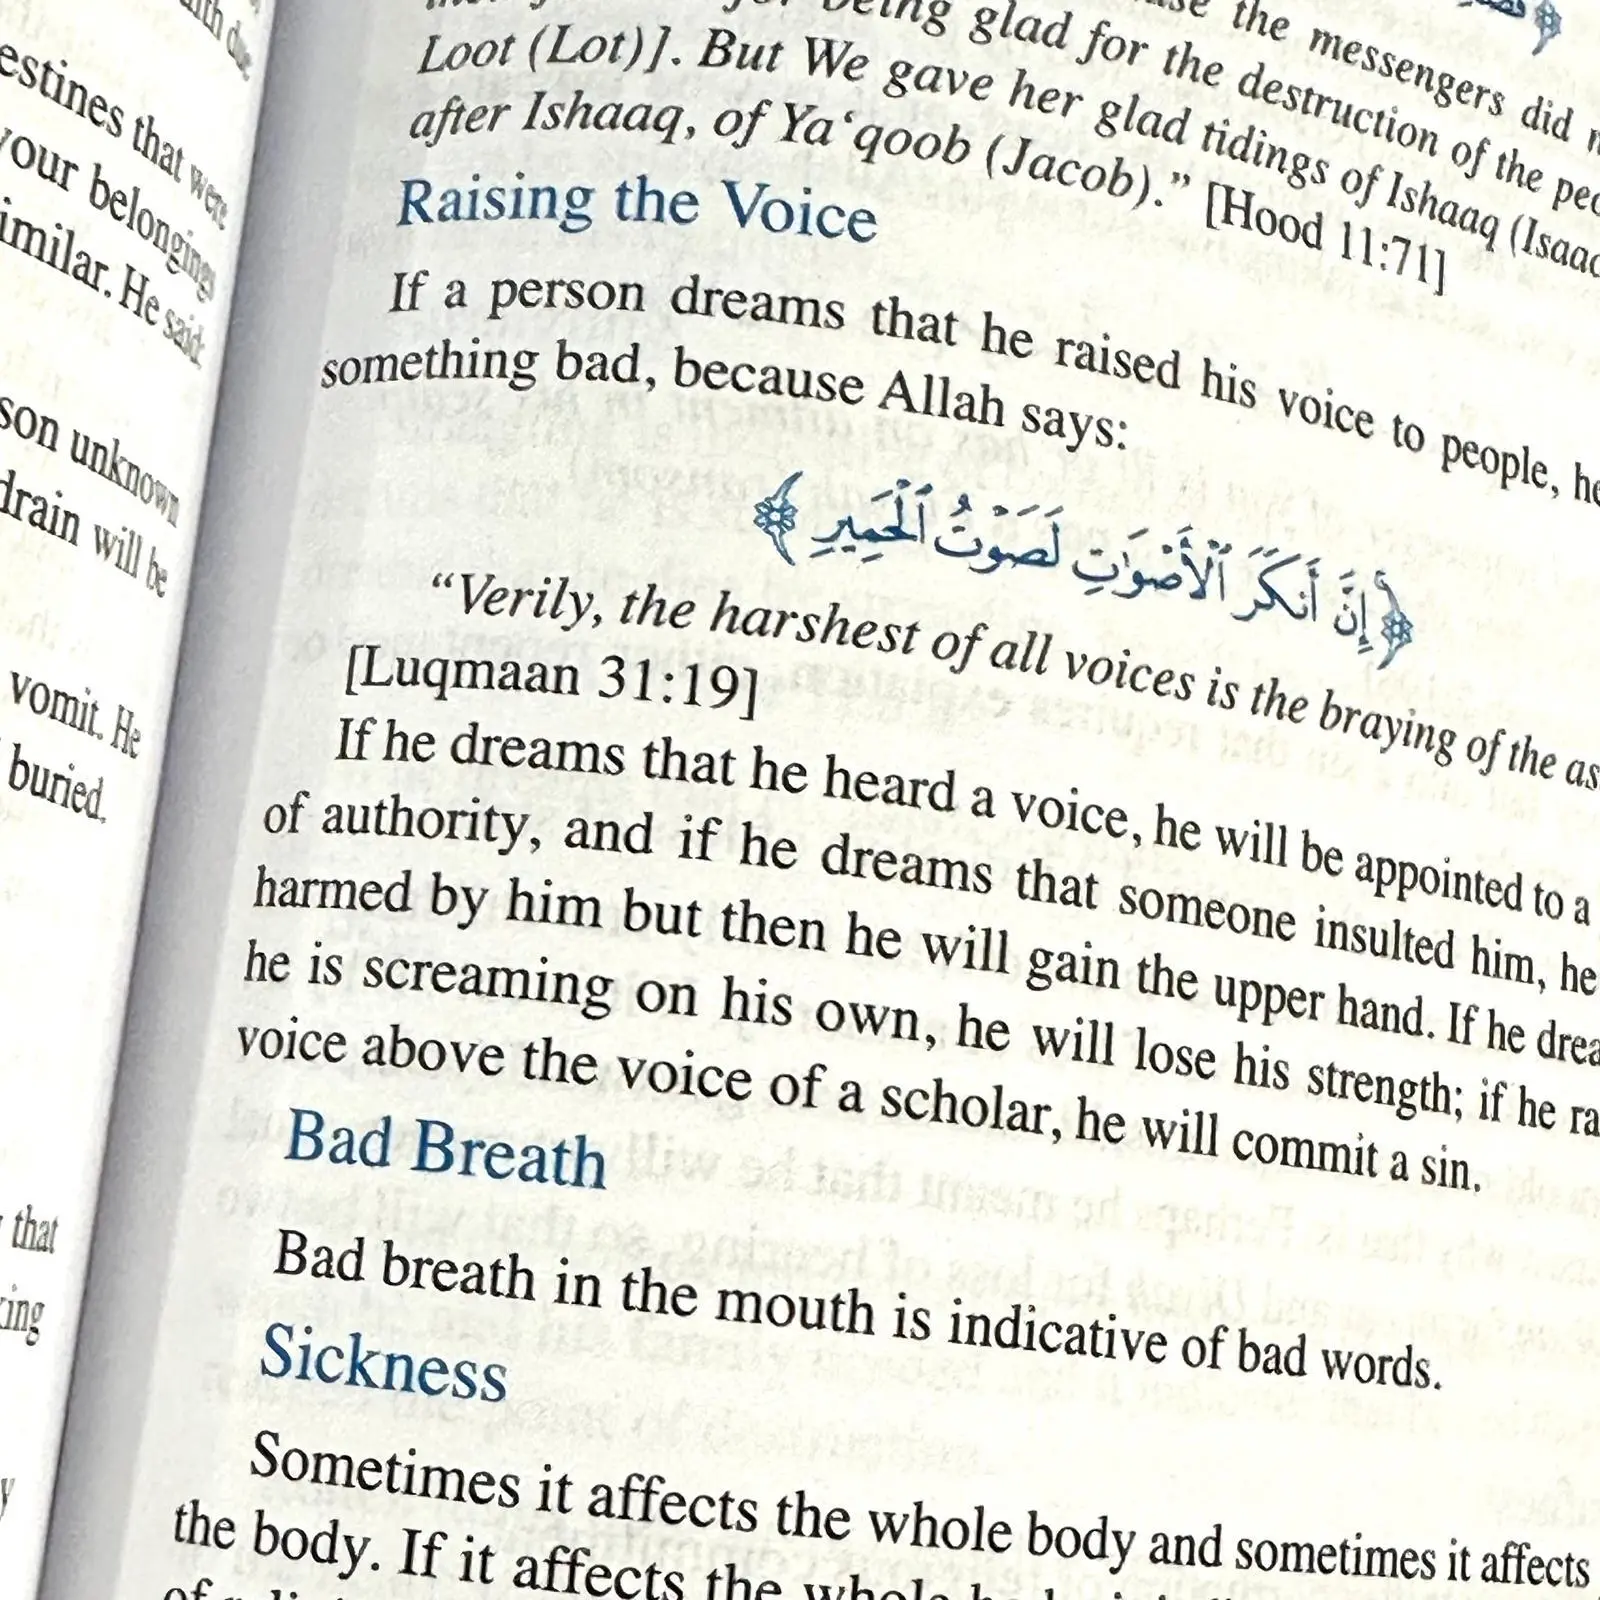 estines that were
your belongings
imilar. He said:
son unknown
drain will be
vomit. He
buried.
that
the messengers did
being glad for the destruction of the
Loot (Lot)]. But We gave her glad tidings of Ishaaq (Isaac
after Ishaaq, of Ya‘qoob (Jacob).” [Hood 11:71]
Raising the Voice
If a person dreams that he raised his voice to people, he
something bad, because Allah says:
﴿إِنَّ أَنكَرَ ٱلْأَصْوَٰتِ لَصَوْتُ ٱلْحَمِيرِ﴾
“Verily, the harshest of all voices is the braying of the as
[Luqmaan 31:19]
If he dreams that he heard a voice, he will be appointed to a
of authority, and if he dreams that someone insulted him, he
harmed by him but then he will gain the upper hand. If he drea
he is screaming on his own, he will lose his strength; if he ra
voice above the voice of a scholar, he will commit a sin.
Bad Breath
Bad breath in the mouth is indicative of bad words.
Sickness
Sometimes it affects the whole body and sometimes it affects
the body. If it affects the whole